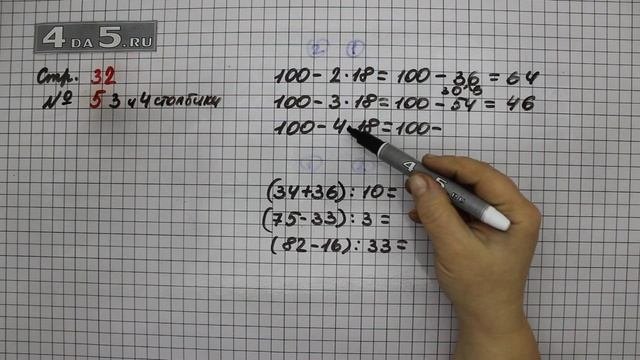 4 DA 5.RU
Стр. 32
№ 5 3 и 4 столбики
2 1
100 - 2 · 18 = 100 - 36 = 64
30 18
100 - 3 · 18 = 100 - 54 = 46
100 - 4 · 18 = 100 -
(34 + 36) : 10 =
(75 - 33) : 3 =
(82 - 16) : 33 =